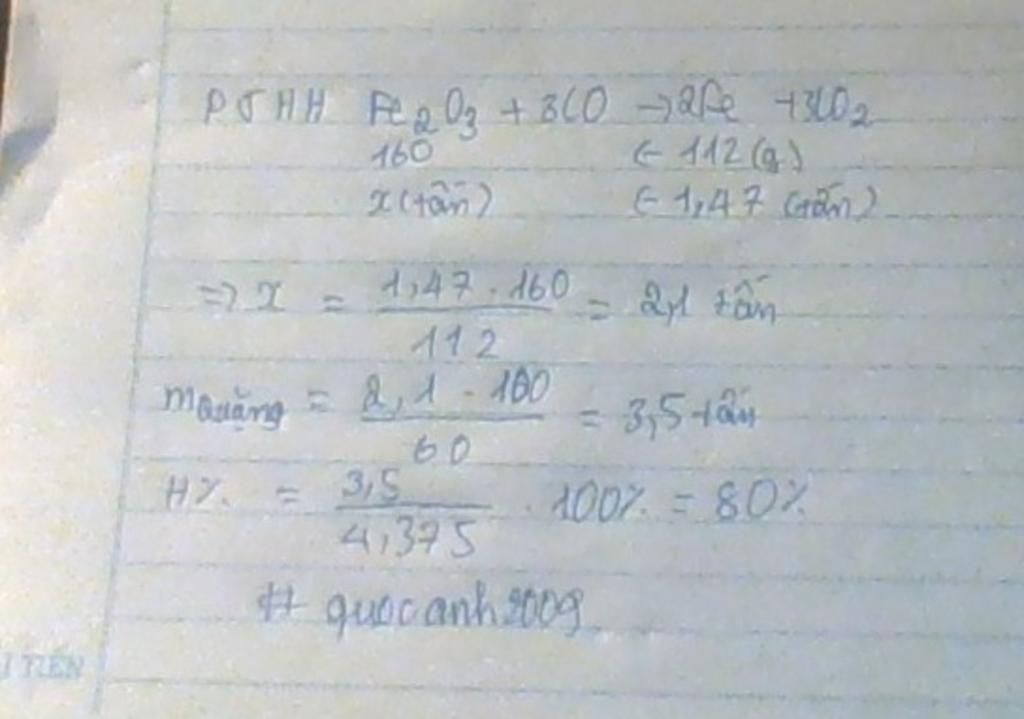 PTHH Fe2O3 + 3CO → 2Fe + 3CO2
160 ← 112 (g)
x (tấn) ← 1,47 (tấn)
=> x = 1,47 . 160 / 112 = 2,1 tấn
mquặng = 2,1 . 100 / 60 = 3,5 tấn
H% = 3,5 / 4,375 . 100% = 80%
# quocanh2009